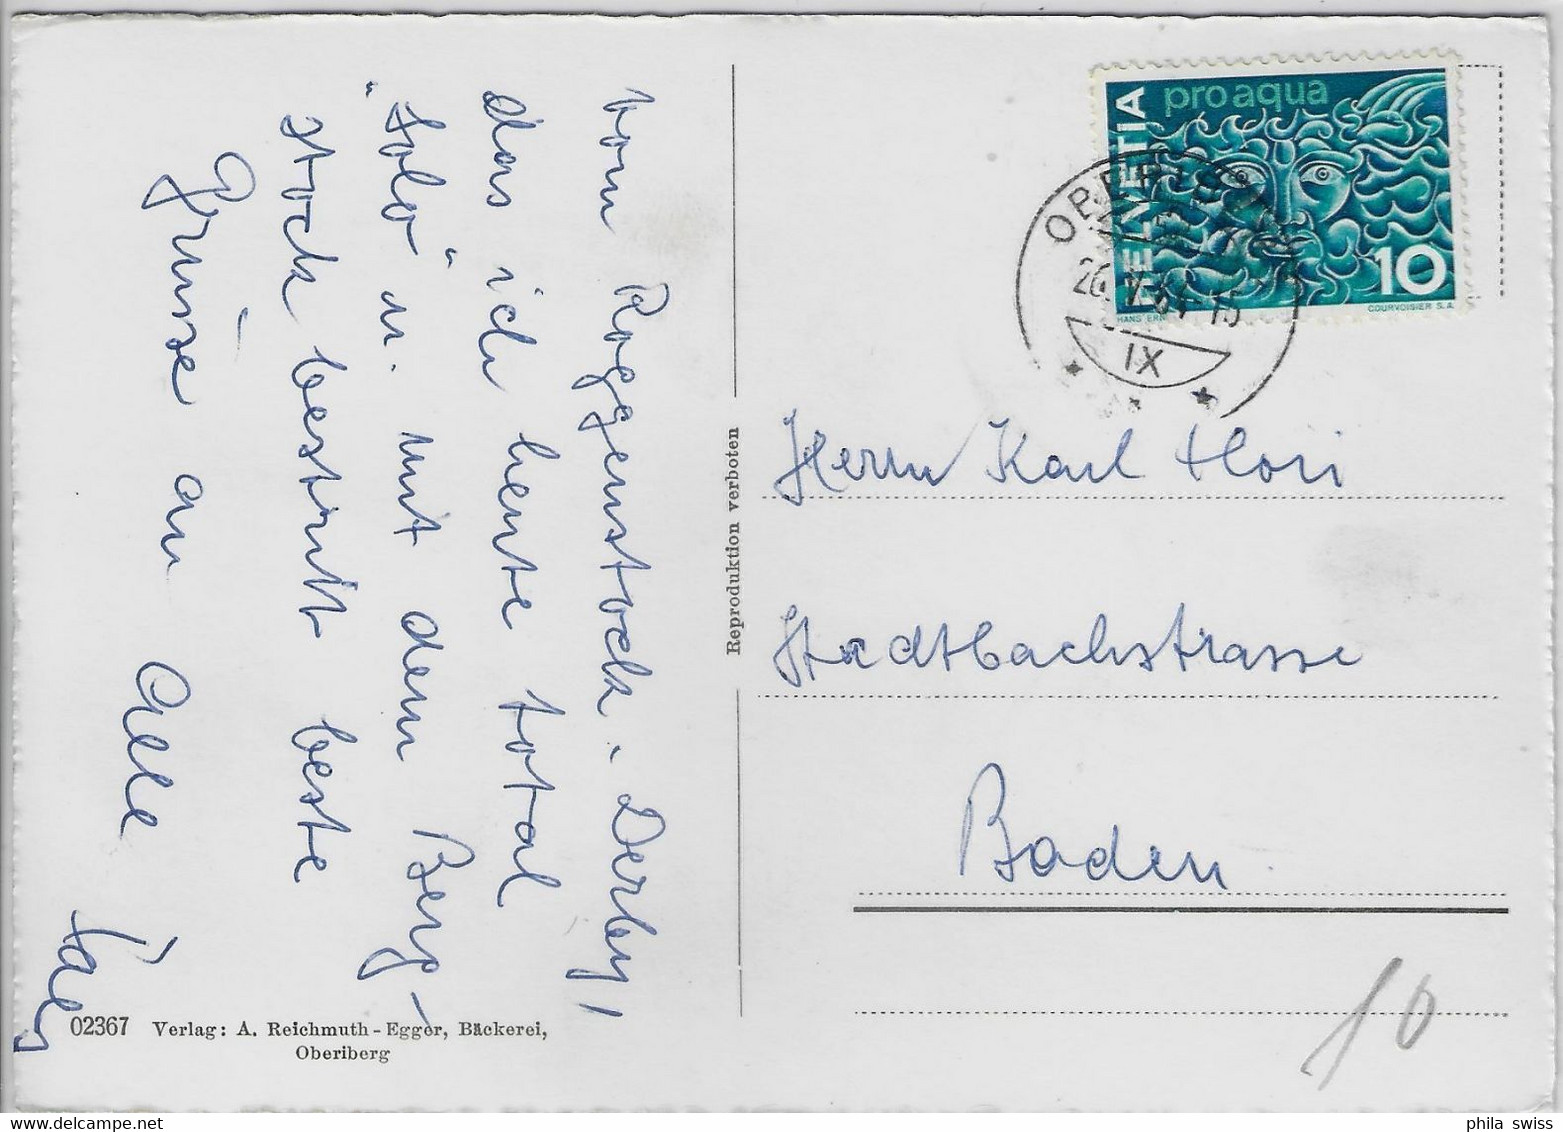 vom Roggenstock-Derby,
das ich heute total
"solo" u. mit dem Berg-
stock bestritt beste
Grüsse an Alle
02367 Verlag: A. Reichmuth-Egger, Bäckerei,
Oberiberg
Reproduktion verboten
HELVETIA
pro aqua
10
HANS ERNI
COURVOISIER S.A.
OBERIBERG
IX
Herrn Karl Hori
Stadtbachstrasse
Baden.
10
phila swiss